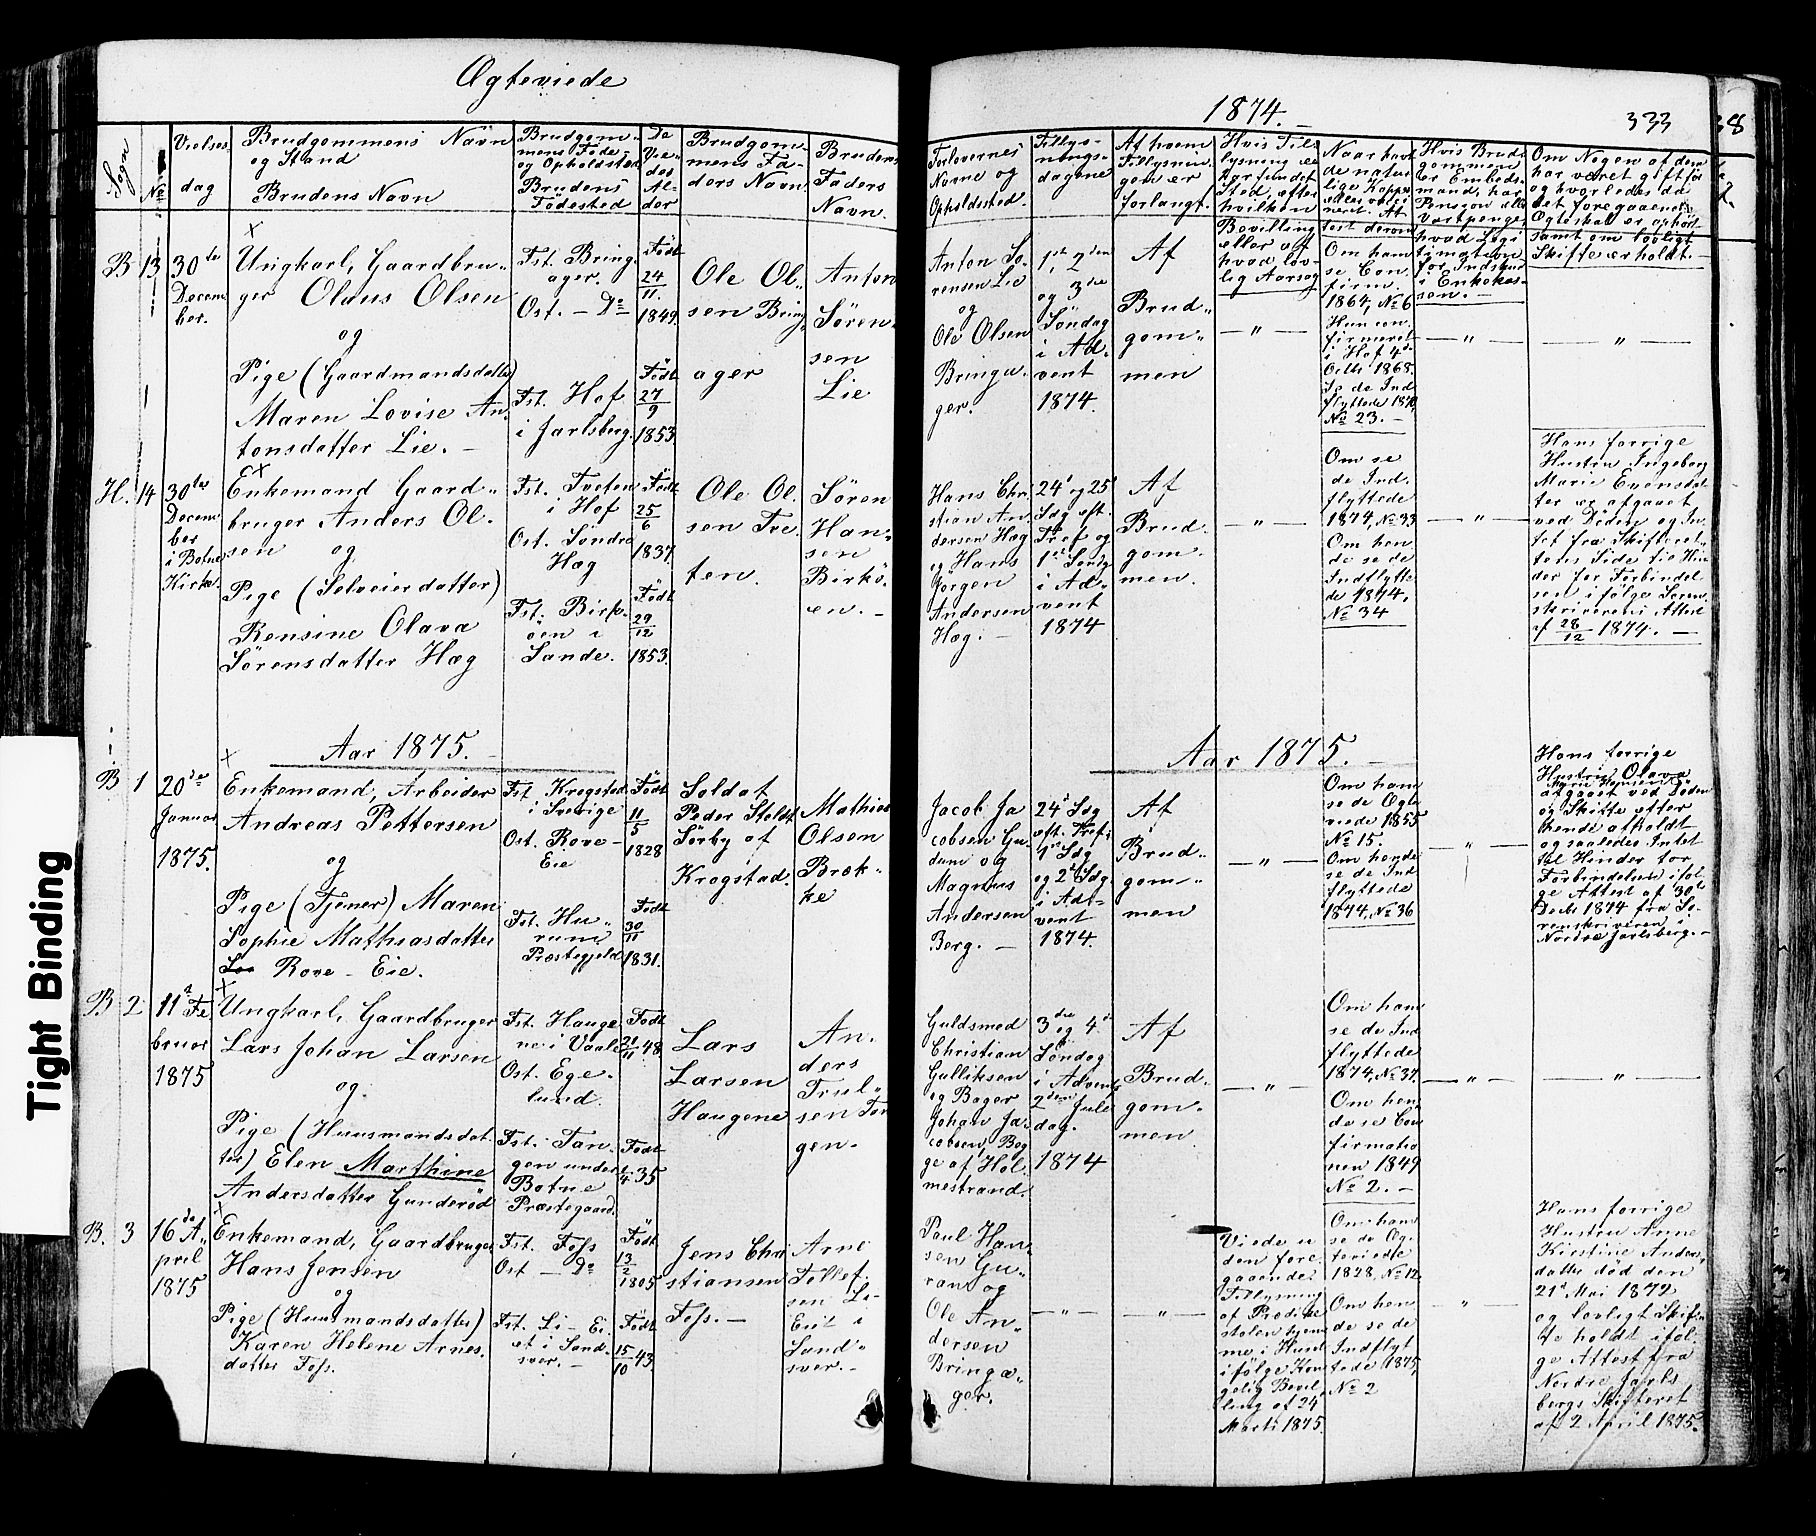 Ægteviede
1874.
333
38
Sogn
No
Vielses
dag
Brudgommens Navn
og Stand
Brudens Navn
Brudgom-
mens Føde-
og Opholdsted
Brudens
Fødested
De
Vie-
des
Al-
der
Brudgom-
mens Fa-
ders Navn
Brudens
Faders
Navn.
Forlovernes
Navne og
Opholdsted.
Tillys-
nings-
dagene
Af hvem
Tillysnin-
gen er
forlangt.
Hvis Til-
lysning ei
har fundet
Sted, efter
hvilken
Bevilling
eller af
hvad lov-
lig Aarsag
Naar havt
de natur-
lige Kopper
eller vacci-
neret. At-
test derom
Hvis Brud-
gommen
er Embeds-
mand, har
Pension eller
Vartpenge,
hvad Legi-
timation
for Indskud
i Enkekas-
sen. -
Om Nogen af dem
har været gift før
og hvorledes da
det foregaaende
Ægteskab er ophørt
samt om lovligt
Skifte er holdt. -
B 13
30te
Decem
ber.
Ungkarl, Gaardbru-
ger Olaus Olsen
og
Pige (Gaardmandsdatter)
Maren Lovise An-
tonsdatter Lie. -
Fst. Bring-
ager.
Ost. - Do
Fst. Hof
i Jarlsberg.
Født
24
11.
1849.
Født
27
9
1853
Ole Ol-
sen Bring-
ager
Anton
Søren-
sen
Lie
Anton Sø-
rensen Lie
og
Ole Olsen
Bringa-
ger.
1ste, 2den
og 3die
Søndag
i Ad-
vent
1874.
Af
Brud-
gom-
men
- " -
Om ham
se Con-
firm.
1864, No 6
Hun con-
firmeret
i Hof 4de
Octbr 1868.
Se de Ind-
flyttede 1870,
No 23. -
- " -
- " -
H. 14
30te
Decem-
ber
i Botne
Kirke.
Enkemand Gaard-
bruger Anders Ol-
sen og
Pige (Selveierdatter)
Rensine Olava
Sørensdatter Hæg
Fst. Tveten
i Hof
Ost. Søndre
Hæg
Fst. Birk-
øen i
Sande.
Født
25
6
1837.
Født
29
12
1853.
Ole Ol-
sen Tve-
ten.
Søren
Han-
sen
Birkø-
en. -
Hans Chri-
stian An-
dersen Hæg
og Hans
Jørgen
Andersen
Hæg. -
24de og 25
Sdg eft.
Tref og
1ste Sønd
i Ad-
vent
1874
Af
Brud-
gom-
men.
- " -
Om se
de Ind-
flyttede
1874, No 33
Om hen-
de se de
Indflytte-
de 1874,
No 34
- " -
Hans forrige
Hustru Ingeborg
Marie Evensdat-
ter er afgaaet
ved Døden og In-
tet fra Skifteret-
tens Side til Hin-
der for Forbindel-
sen ifølge Soren-
skriverens Attest
af 28/12 1874. -
Aar 1875.
Aar 1875.
B 1
20de
Januar
1875.
Enkemand, Arbeider
Andreas Pettersen
og
Pige (Tjener) Maren
Sophie Mathiasdatter
Rove-Eie.
Fst. Krogstad
i Sverige
Ost. Rove-
Eie
Fst. Hu-
rum
Præstegjeld
Født
11
5
1828
Født
30
11
1831.
Soldat
Peder Stoldt
Sørby af
Krogstad.
Mathias
Olsen
Bræk-
ke
Jacob Ja-
cobsen Gu-
dum og
Magnus
Andersen
Berg. -
24de Sdg
eft. Tref.
1ste Sdg
og 2de Sdg.
i Ad-
vent
1874.
Af
Brud-
gom-
men
- " -
Om ham
se de Ægte-
viede 1855
No 15.
Om hende
se de Ind-
flyttede
1874, No 36
- " -
Hans forrige
Hustru Olava
afgaaet ved Døden
og Skifte efter
hende afholdt
og saaledes Intet
til Hinder for
Forbindelsen iføl-
ge Attest af 30te
Decbr 1874 fra So-
renskriveren i
Nordre Jarlsberg. -
B 2
11te Fe-
bruar
1875
Ungkarl, Gaardbruger
Lars Johan Larsen
og
Pige (Huusmandsdat-
ter) Elen Marthine
Andersdatter Gunderød
Fst. Hauge-
ne i Vaale
Ost. Ege-
lund.
Fst. Tan-
gen under
Botne
Præstegaard.
Født
21/11 48.
Født
35
Lars
Larsen
Haugene
An-
ders
Trul-
sen Tan-
gen.
Guldsmed
Christian
Gulliksen
og Bager
Johan Ja-
cobsen, Beg-
ge af Hol-
mestrand.
3die og 4de
Søndag
i Advent,
2den Jule-
dag.
1874
Af
Brud-
gom-
men.
- " -
Om ham
se de Ind-
flyttede
1874, No 37.
Om hen-
de se Con-
firmatio-
nen 1849
No 2. -
- " -
- " -
B. 3
16de A-
pril
1875
Enkemand, Gaardbruger
Hans Jensen
og
Pige (Huusmandsdatter)
Karen Helene Arnes-
datter Foss.
Fst. Foss
Ost - Do
Fst. Li-Ei-
et i Sand-
sver. -
Født
13
2
1805
Født
15
10 43.
Jens Chri-
stiansen
Foss. -
Arne
Tollef-
sen Li-
Eiet i
Sand-
sver. -
Paul Han-
sen Gu-
ran og
Ole An-
dersen
Bringa-
ger.
- " -
- " -
Viede u-
den fore-
gaaende
Tillysning
af Prædike-
stolen hjem-
me i Huset
ifølge Kon-
gelig Bevil-
ling af 24
Marts 1875.
Om ham
se de Æg-
teviede
1828, No 12
Om hen-
de se de
Indflyt-
tede 1875,
No 2
- " -
Hans forrige
Hustru Anne
Kirstine Anders-
datter død den
21de Mai 1872
og lovligt Skif-
te holdt iføl-
ge Attest fra
Nordre Jarls-
bergs Skifteret
af 2 April 1875.
Tight Binding